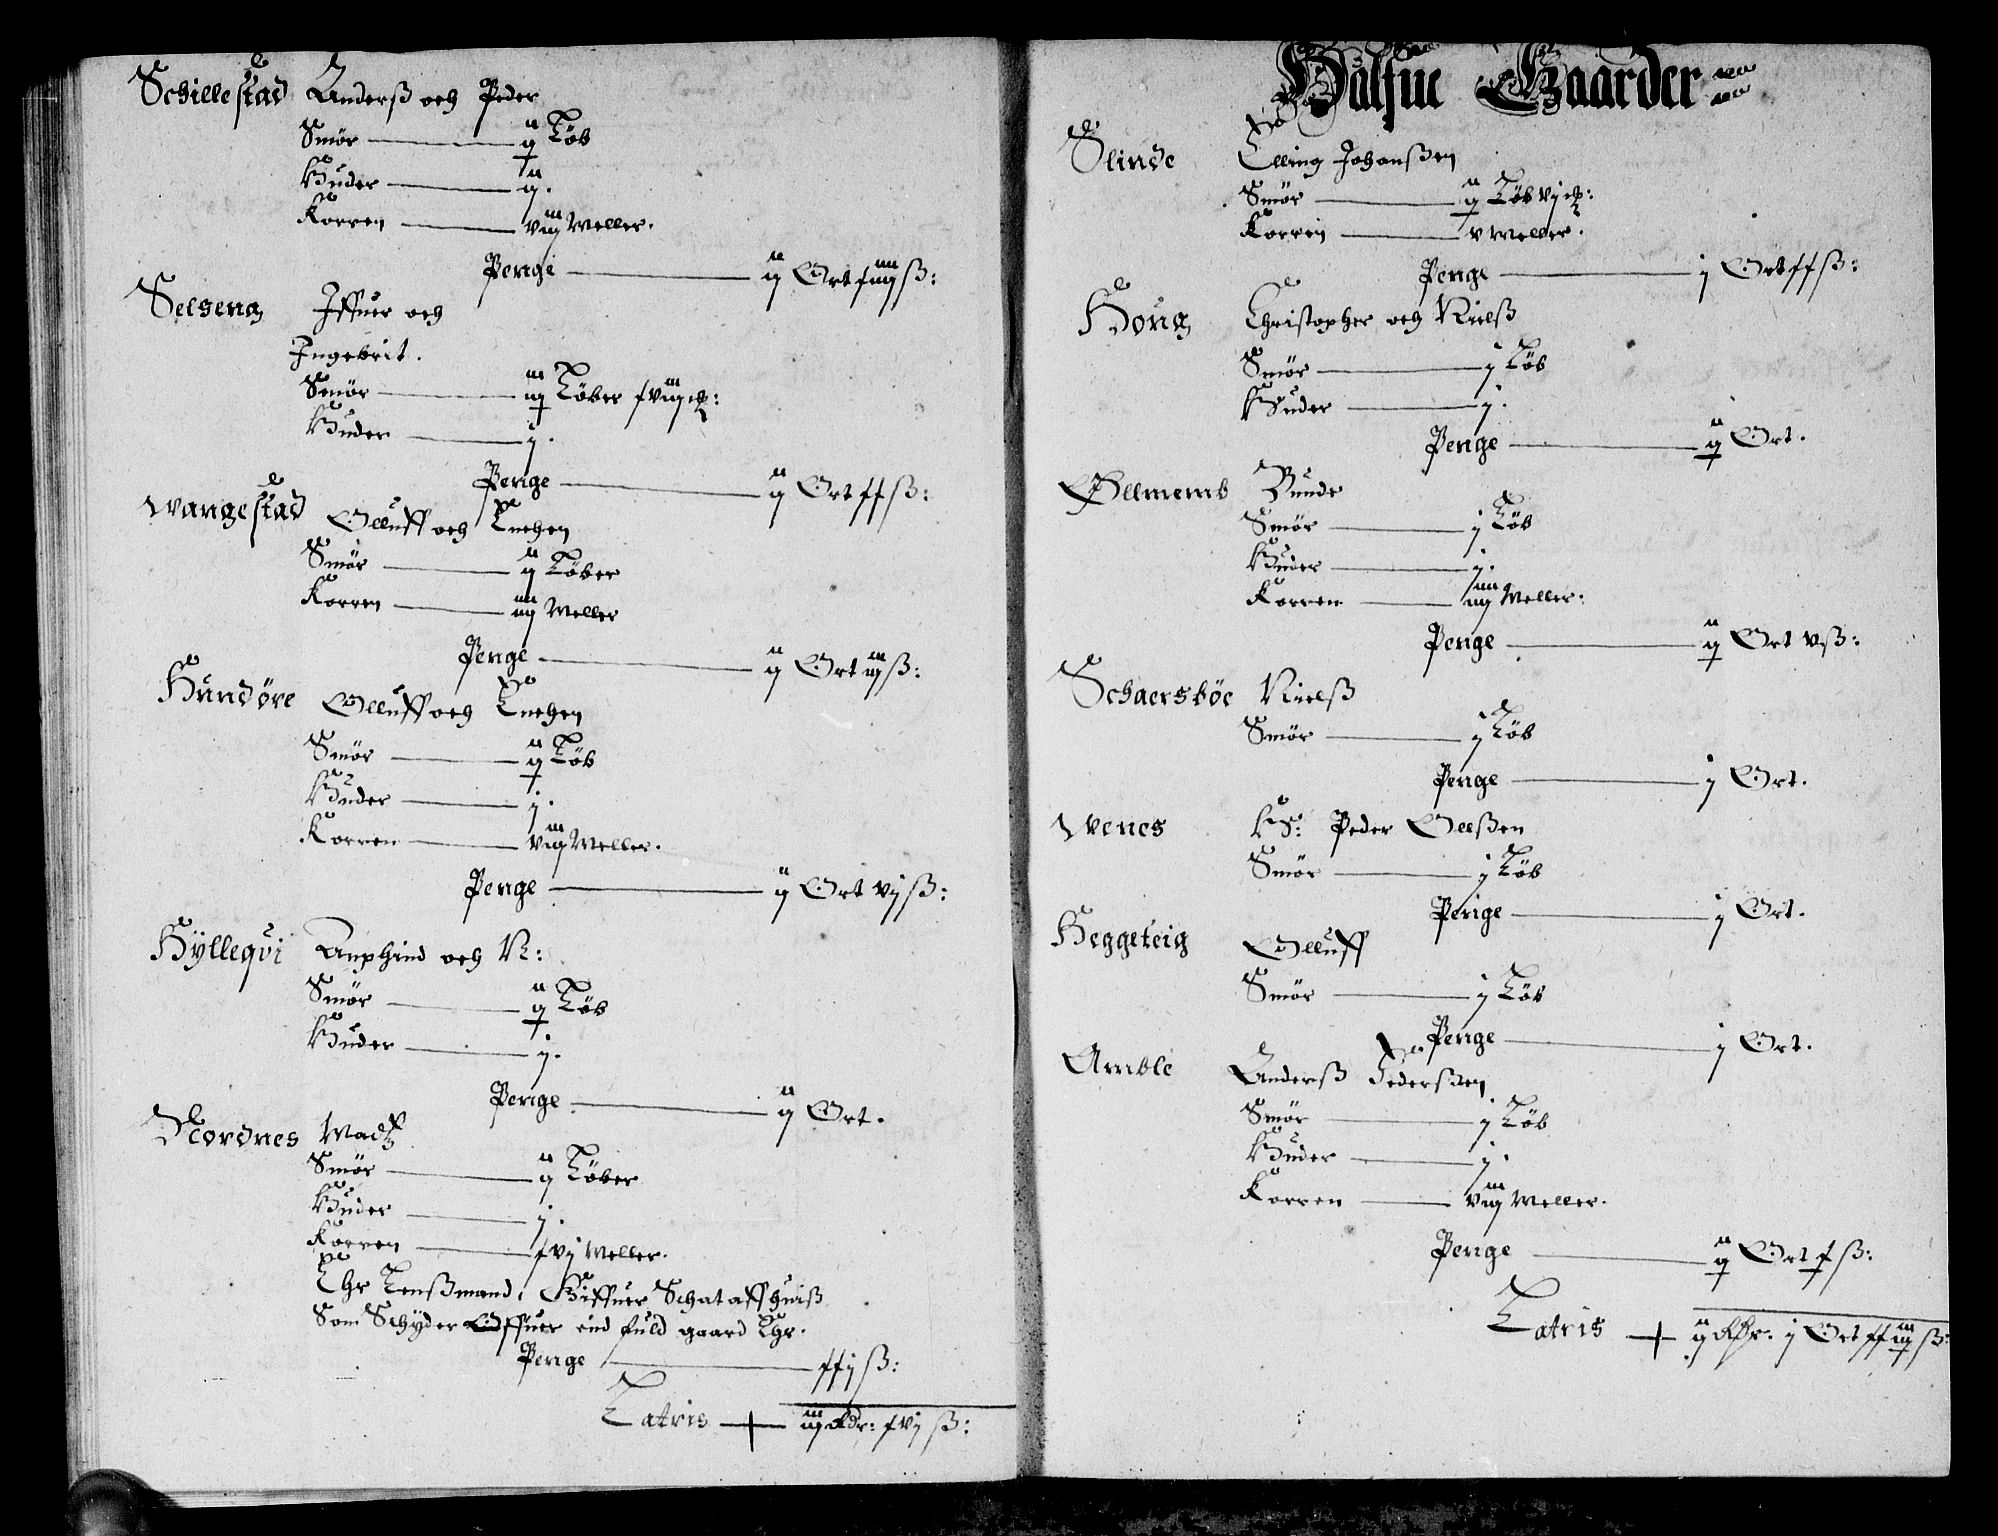 Schillestad Anderß och Peder
Smør ij Løb
Huder ij.
Korren viij Meller.
Penge ij Ort xiiij ß:
Selseng Iffuer och
Ingebrit.
Smør iij Løber xviij
Huder j.
Penge ij Ort xx ß:
Wangestad Olluff och Enchen
Smør ij Løber
Korren iiij Meller
Penge ij Ort iij ß:
Hundøre Olluff och Enchen
Smør ij Løb
Huder j.
Korren viij Meller.
Penge ij Ort vj ß:
Hÿlleqvi Anphind och N:
Smør ij Løb
Huder j.
Penge ij Ort.
Nordnes Madtz
Smør ij Løber
Huder j.
Korren xvj Meller.
Ehr Lenßmand, Giffuer Schat aff huiß
Som Schyder Offuer eind fuld gaard Ehr.
Penge xxj ß:
Latris iij Rdr: xvj ß:
Halfue Gaarder
Slinde Elling Johanßen
Smør ij Løb vj
Korren v Meller.
Penge j Ort xx ß:
Houg Christopher och Nielß
Smør j Løb
Huder j.
Penge ij Ort.
Ollmemb Bunde
Smør j Løb
Huder j.
Korren iiij Meller:
Penge ij Ort v ß:
Schaersbøe Nielß
Smør j Løb
Penge j Ort.
Wenes HS: Peder Ollßen
Smør j Løb
Penge j Ort.
Heggeteig Olluff
Smør j Løb
Penge j Ort.
Amble Anderß Pederßen
Smør j Løb
Huder j.
Korren viij Meller.
Penge ij Ort x ß:
Latris ij Rdr. j Ort xxiij ß: